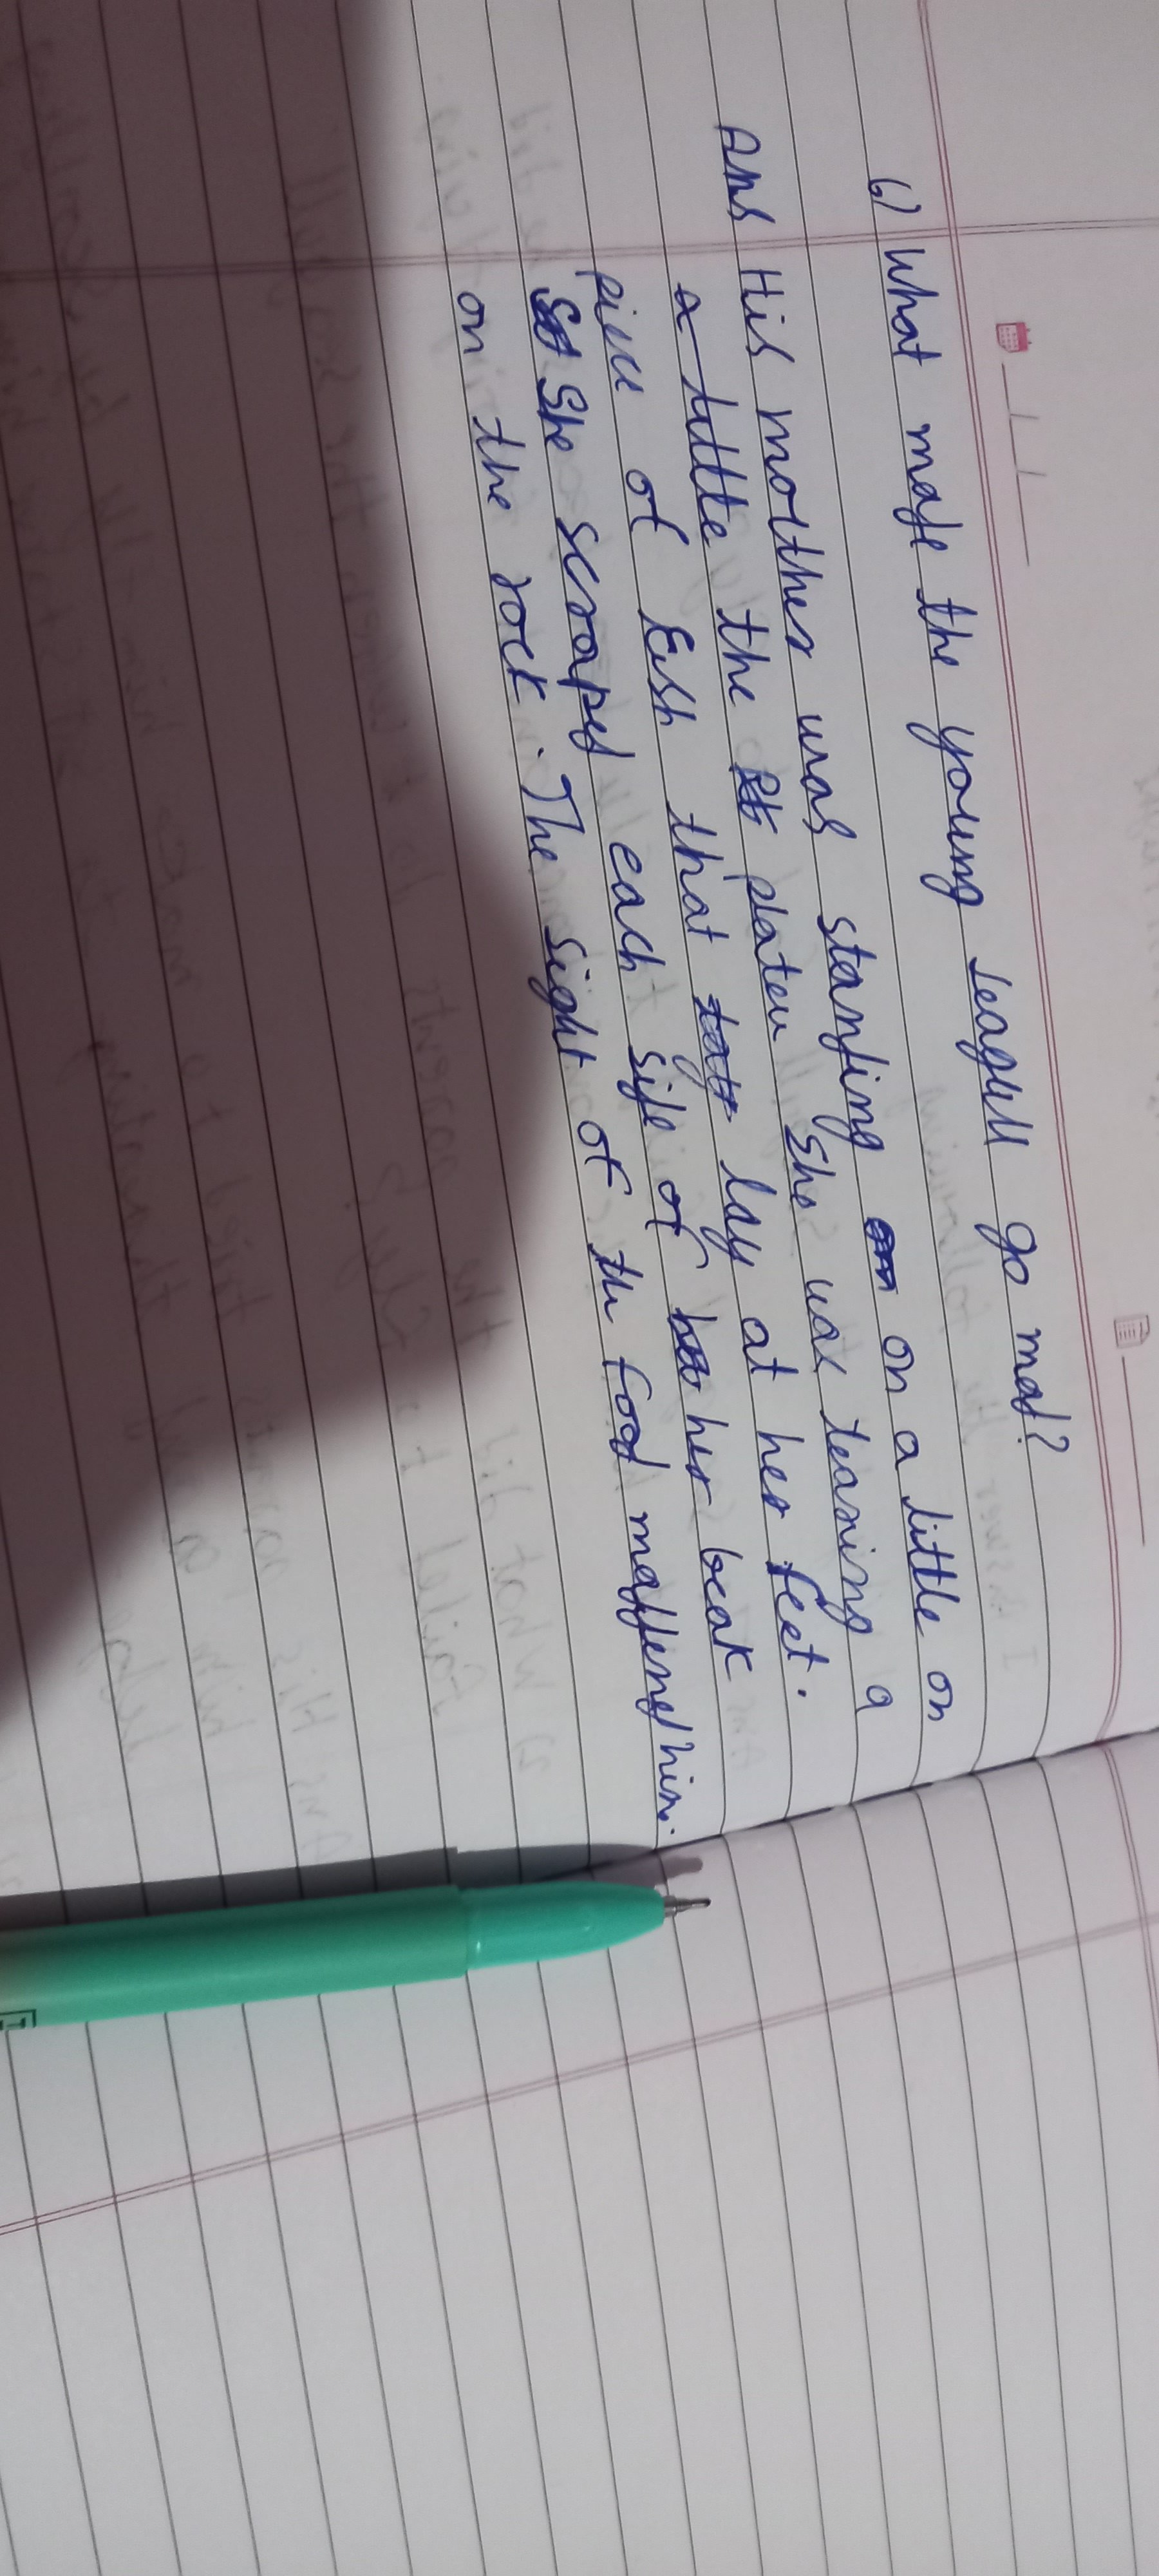 6) What made the young seagull go mad?
Ans His mother was standing on a little on
a little the plateu She was tearing a
piece of Fish that lay at her feet.
She scraped each side of her beak
on the rock. The sight of the food maddened him.